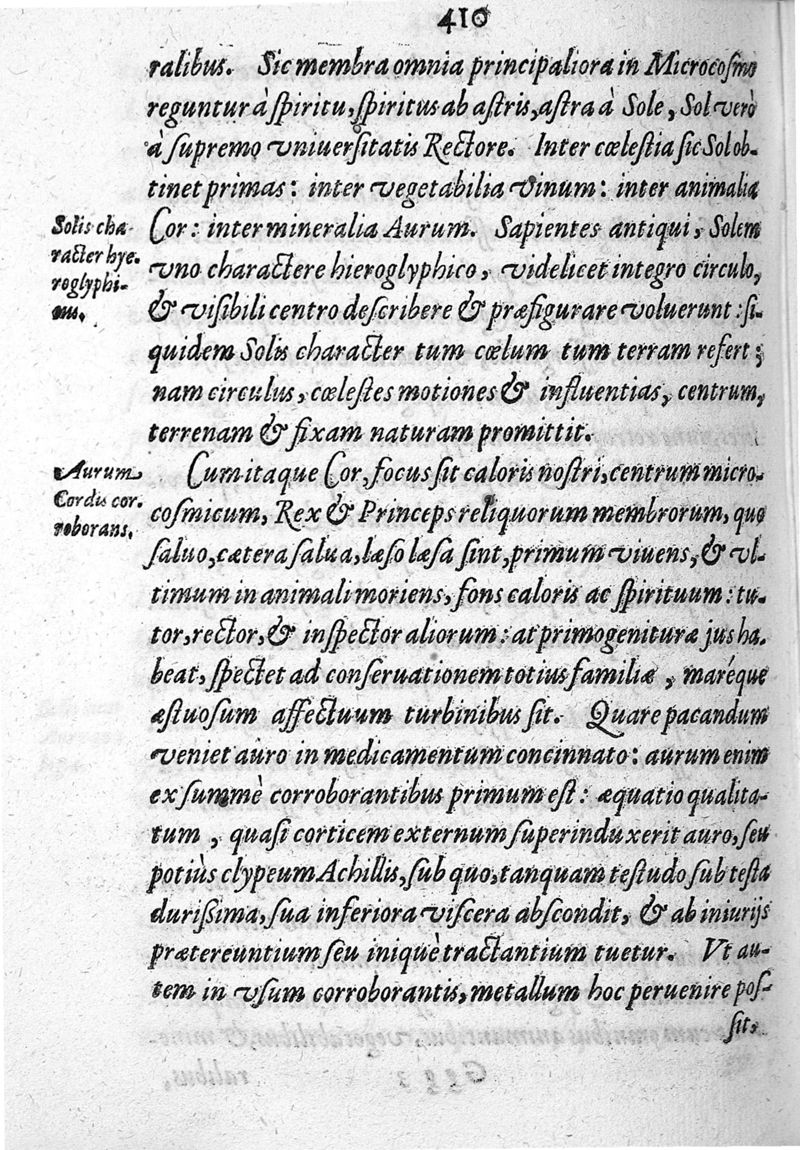 410
ralibus. Sic membra omnia principaliora in Microcosmo
reguntur à spiritu, spiritus ab astris, astra à Sole, Sol verò
à supremo vniuersitatis Rectore. Inter cœlestia sic Sol ob-
tinet primas: inter vegetabilia Vinum: inter animalia
Solis cha-
racter hye-
roglyphi-
cus.
Cor: inter mineralia Aurum. Sapientes antiqui, Solem
vno charactere hieroglyphico, videlicet integro circulo,
& visibili centro describere & præfigurare voluerunt: si-
quidem Solis character tum cœlum tum terram refert;
nam circulus, cœlestes motiones & influentias, centrum,
terrenam & fixam naturam promittit.
Aurum
Cordis cor-
roborans.
Cum itaque Cor, focus sit caloris nostri, centrum micro-
cosmicum, Rex & Princeps reliquorum membrorum, quo
saluo, cætera salua, læso læsa sint, primum viuens, & vl-
timum in animali moriens, fons caloris ac spirituum: tu-
tor, rector, & inspector aliorum: at primogenituræ jus ha-
beat, spectet ad conseruationem totius familiæ, maréque
æstuosum affectuum turbinibus sit. Quare pacandum
veniet auro in medicamentum concinnato: aurum enim
ex summè corroborantibus primum est: æquatio qualita-
tum, quasi corticem externum superinduxerit auro, seu
potiùs clypeum Achillis, sub quo, tanquam testudo sub testa
durissima, sua inferiora viscera abscondit, & ab iniurijs
prætereuntium seu iniquè tractantium tuetur. Vt au-
tem in vsum corroborantis, metallum hoc peruenire pos-
sit,